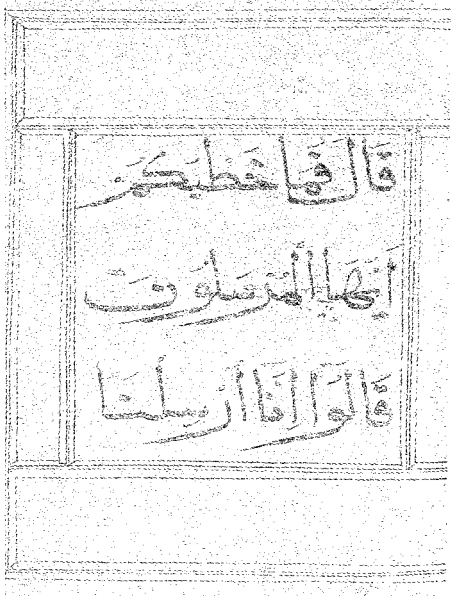 قال فما خطبكم
أيها المرسلون
قالوا إنا أرسلنا